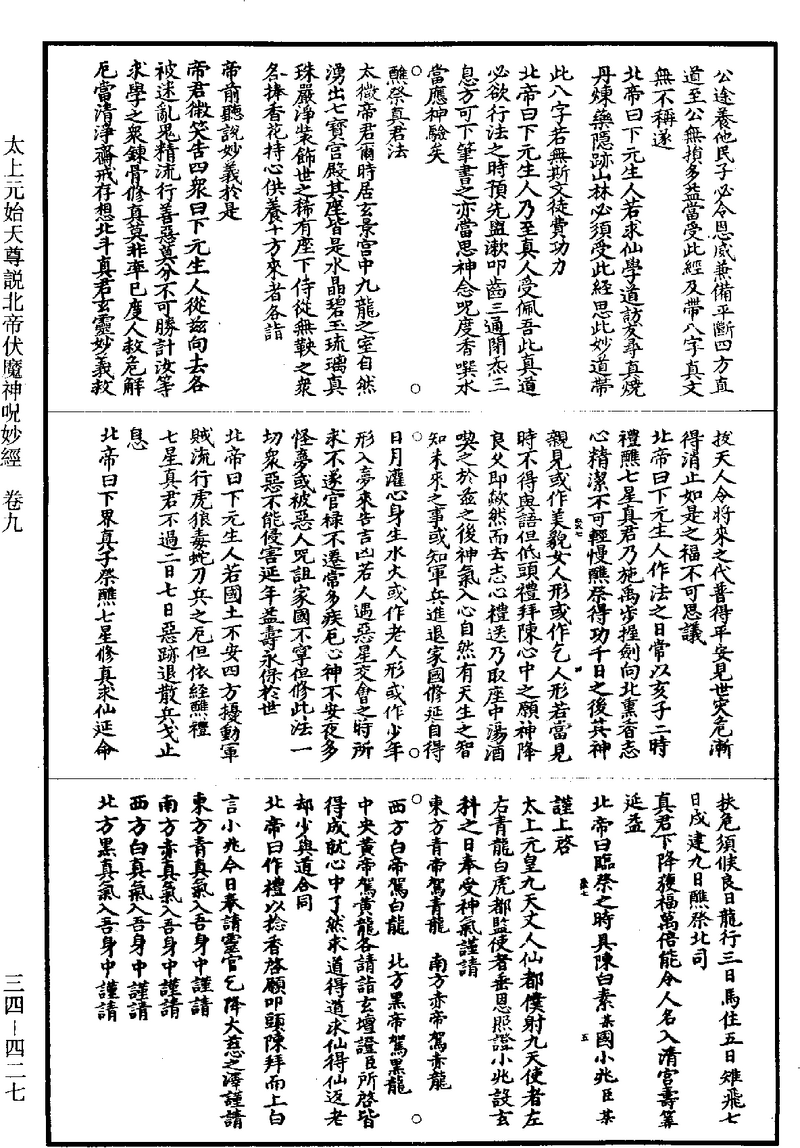 公途養他民子必令恩威兼備平斷四方直
道至公無損多益當受此經及帶八字真文
無不稱遂
北帝曰下元生人若求仙學道訪友尋真燒
丹煉藥隱跡山林必須受此經思此妙道帶
此八字若無斯文徒費功力
北帝曰下元生人乃至真人受佩吾此真道
必欲行法之時預先盥漱叩齒三通閉炁三
息方可下筆書之亦當思神念呪度香噀水
當應神驗矣
醮祭真君法
太微帝君爾時居玄景宮中九龍之室自然
湧出七寶宮殿其座皆是水晶碧玉琉璃真
珠嚴淨裝飾世之稀有座下侍從無鞅之衆
各捧香花持心供養十方來者各詣
帝前聽說妙義於是
帝君微笑告四衆曰下元生人從茲向去各
被迷亂鬼精流行善惡莫分不可勝計汝等
求學之衆鍊骨修真莫非率已度人救危解
厄當清淨齋戒存想北斗真君玄靈妙義救
拔天人令將來之代普得平安見世灾危漸
得消止如是之福不可思議
北帝曰下元生人作法之日常以亥子二時
禮醮七星真君乃施禹步揑劍向北熏香志
心精潔不可輕慢醮祭得功千日之後其神
親見或作美貌女人形或作乞人形若當見
時不得與語但低頭禮拜陳心中之願神降
良久即歘然而去志心禮送乃取座中湯酒
喫之於盃之後神氣入心自然有天生之智
知未來之事或知軍兵進退家國修延自得
日月灌心身生水火或作老人形或作少年
形入夢來告吉凶若人遇惡星交會之時所
求不遂官祿不遷常多疾厄心神不安夜多
怪夢或被惡人呪詛家國不寧但修此法一
切衆惡不能侵害延年益壽永保於世
北帝曰下元生人若國土不安四方擾動軍
賊流行虎狼毒蛇刀兵之厄但依經醮禮
七星真君不過二日七日惡跡退散兵戈止
息
北帝曰下界真子祭醮七星修真求仙延命
扶危須候良日龍行三日馬住五日雉飛七
日戍建九日醮祭北司
真君下降獲福萬倍能令人名入清宮壽筭
延益
北帝曰臨祭之時具陳白素某國小兆臣某
謹上啓
太上元皇九天丈人仙都僕射九天使者左
右青龍白虎都監使者垂恩照證小兆設玄
科之日奉受神氣謹請
東方青帝駕青龍　南方赤帝駕赤龍
西方白帝駕白龍　北方黑帝駕黑龍
中央黃帝駕黃龍各請詣玄壇證臣所啓皆
得成就心中了然求道得道求仙得仙返老
却少與道合同
北帝曰作禮以捻香啓願叩頭陳拜而上白
言小兆今日奉請靈官乞降大慈之澤謹請
東方青真氣入吾身中謹請
南方赤真氣入吾身中謹請
西方白真氣入吾身中謹請
北方黑真氣入吾身中謹請
太上元始天尊說北帝伏魔神呪妙經　卷九
三四－四二七